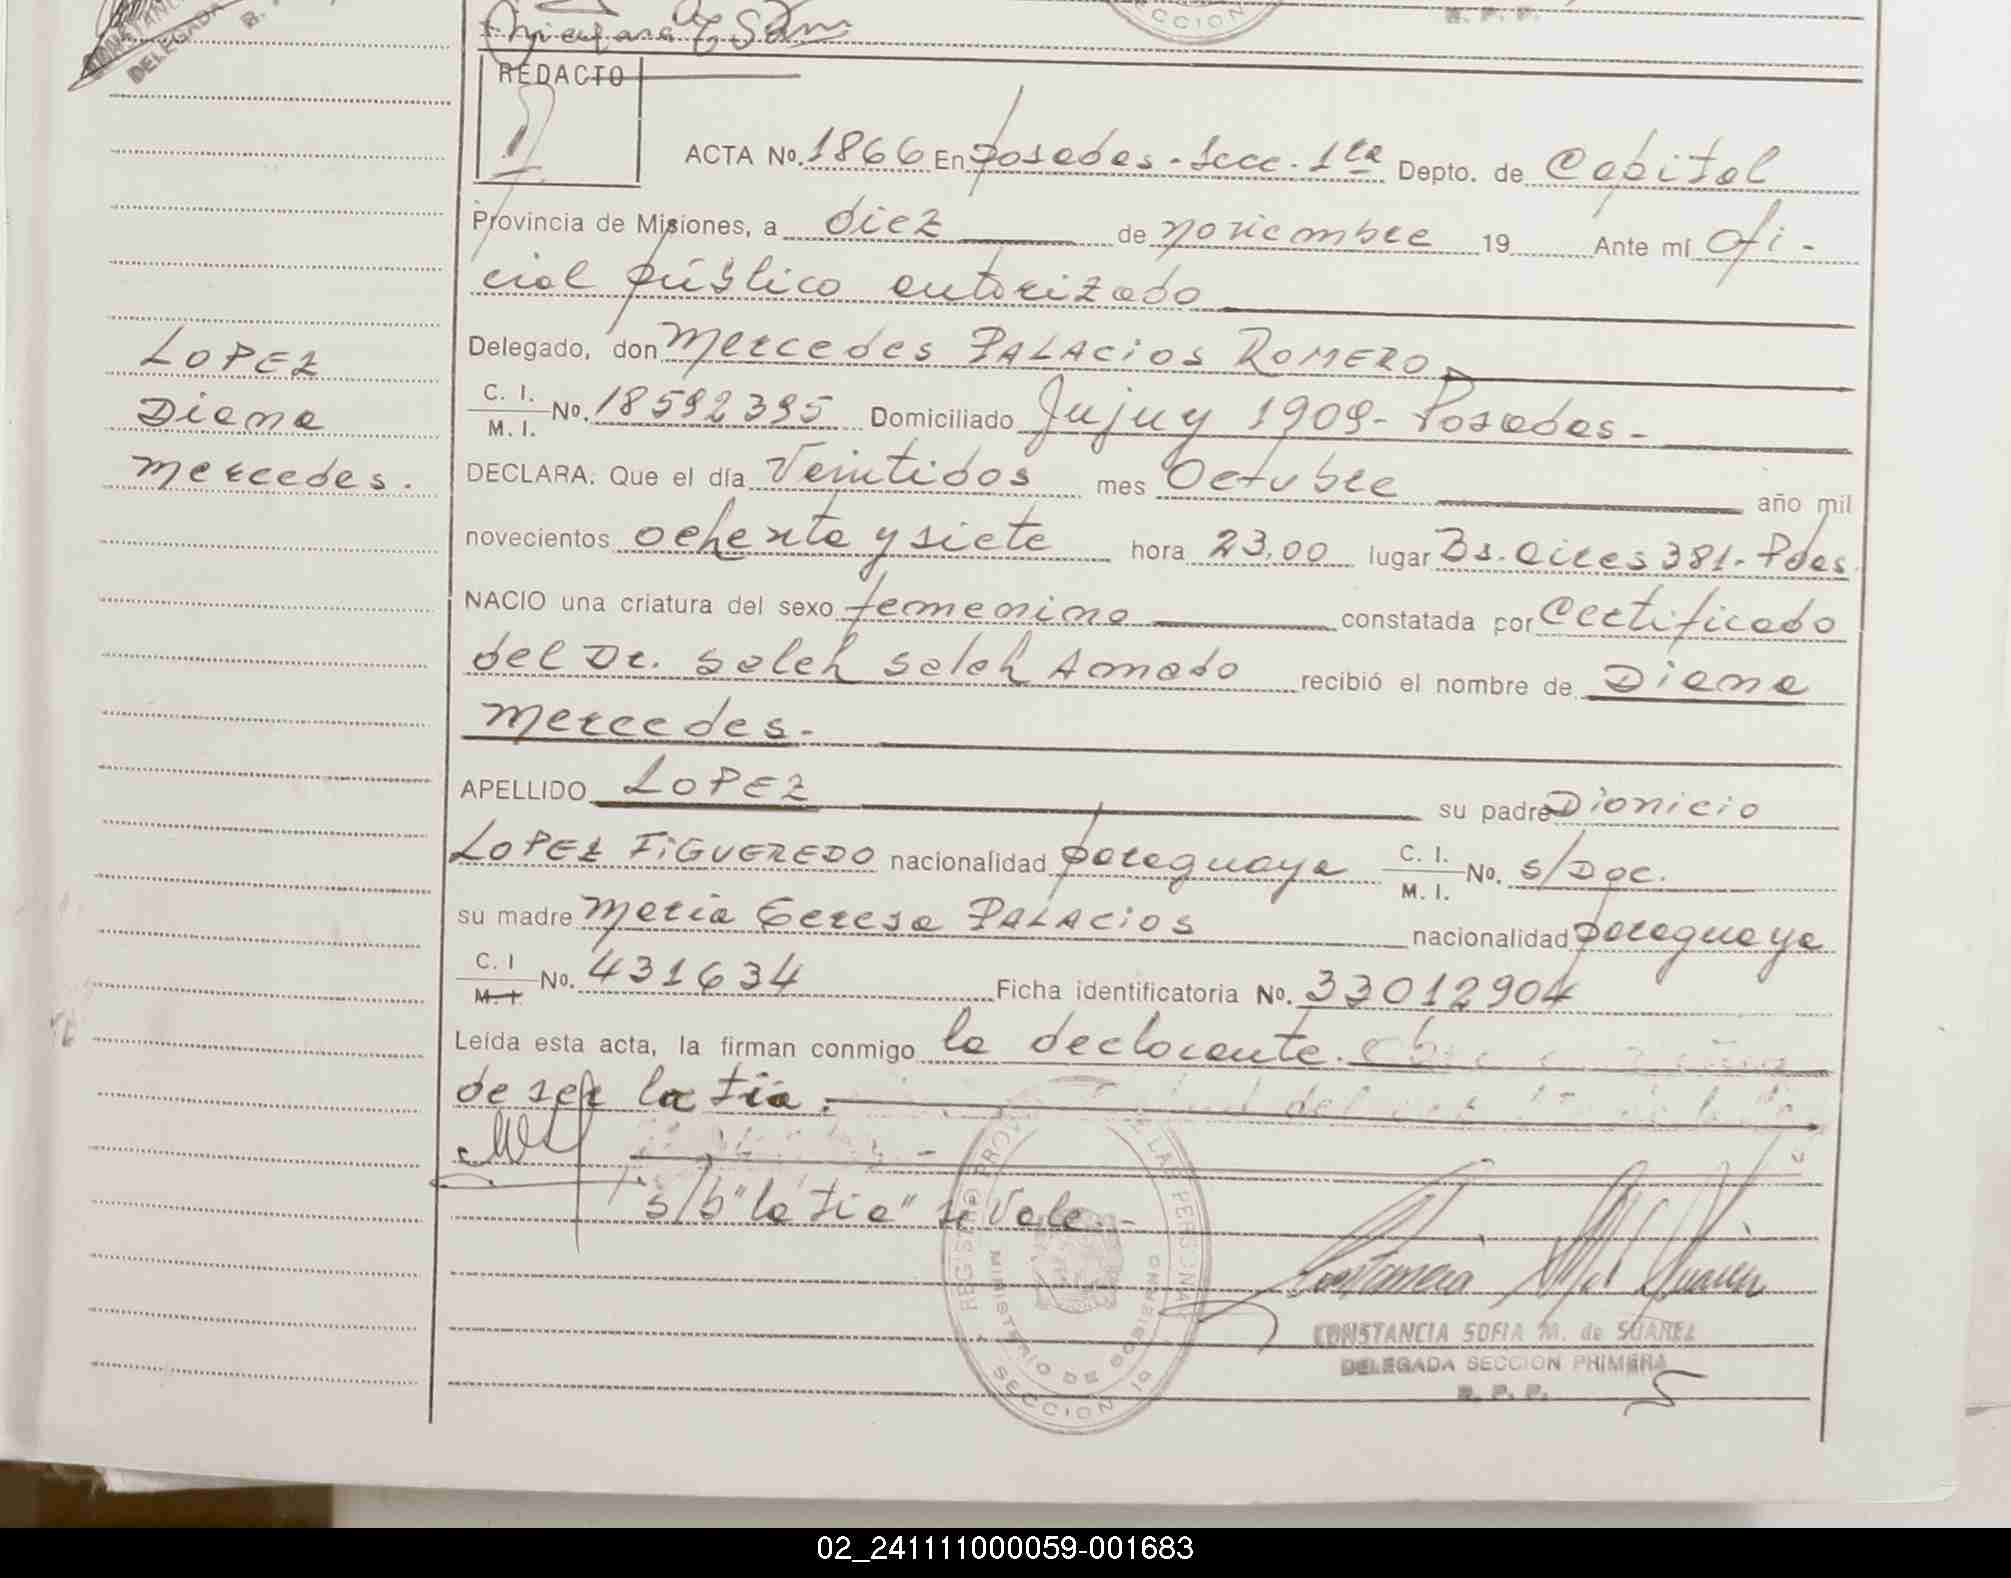 DELEGADA
SECCION
R. P. P.
REDACTO
ACTA No. 1866 En Posadas - Secc. 1ra Depto. de Capital
Provincia de Misiones, a diez de noviembre 19 Ante mí ofi-
cial público autorizado
Delegado, don Mercedes PALACIOS ROMERO
C. I.
M. I. No. 18592395 Domiciliado Jujuy 1909 - Posadas -
LOPEZ
Diana
Mercedes.
DECLARA: Que el día Veintidos mes Octubre año mil
novecientos ochenta y siete hora 23,00 lugar Bs. Aires 381 - Pdas
NACIO una criatura del sexo femenino constatada por Certificado
del Dr. Saleh Saleh Amado recibió el nombre de Diana
Mercedes.-
APELLIDO LOPEZ su padre Dionicio
LOPEZ FIGUEREDO nacionalidad paraguaya C. I.
M. I. No. s/Doc.
su madre María Teresa PALACIOS nacionalidad paraguaya
C. I
M. I No. 431634 Ficha identificatoria No. 33012904
Leída esta acta, la firman conmigo la declarante.
de ser la tía.
s/b "la tía" si Vale.-
REGISTRO PROVINCIAL DE LAS PERSONAS
MINISTERIO DE GOBIERNO
SECCION 1a
Constancia M de Suarez
CONSTANCIA SOFIA M. de SUAREZ
DELEGADA SECCION PRIMERA
R. P. P.
02_241111000059-001683